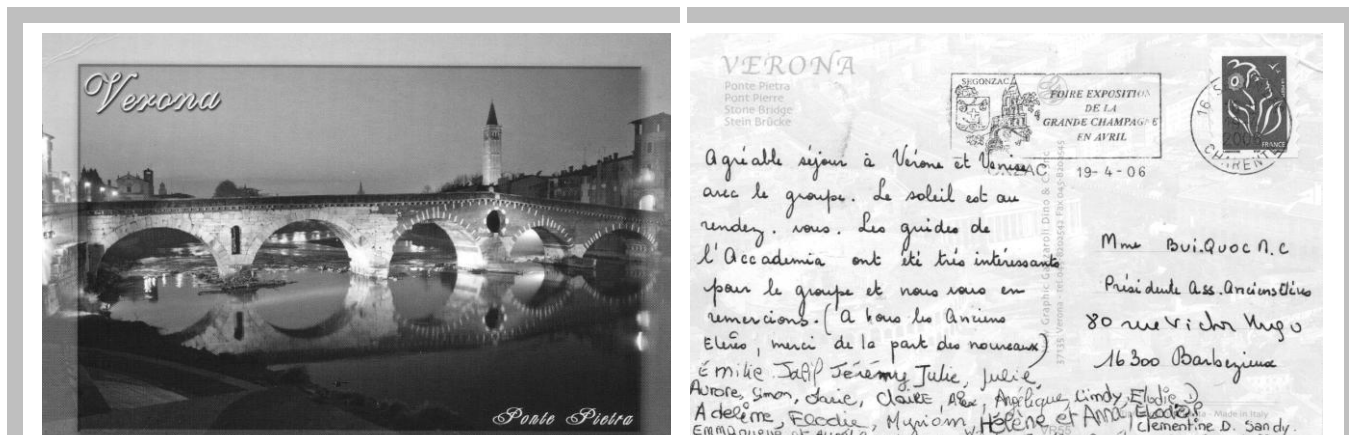 Verona
Ponte Pietra
VERONA
Ponte Pietra
Pont Pierre
Stone Bridge
Stein Brücke
SEGONZAC
FOIRE EXPOSITION
DE LA
GRANDE CHAMPAGNE
EN AVRIL
19-4-06
CHARENTE
FRANCE
Agréable séjour à Vérone et Venise
avec le groupe. Le soleil est au
rendez-vous. Les guides de
l'Accademia ont été très intéressants
pour le groupe et nous vous en
remercions. (A tous les Anciens
Elèves, merci de la part des nouveaux)
Émilie. Jérémy Julie, Julie,
Aurore, Simon, Claire Alex, Angélique, Cindy, Elodie :)
Adeline, Elodie, Myriam, Hélène et Anna, Elodie,
Clémentine D. Sandy.
Mme Bui.Quoc N.C
Présidente Ass. Anciens Elèves
80 rue Victor Hugo
16300 Barbezieux
Graphic Garzaroli Dino & C. snc
Made in Italy